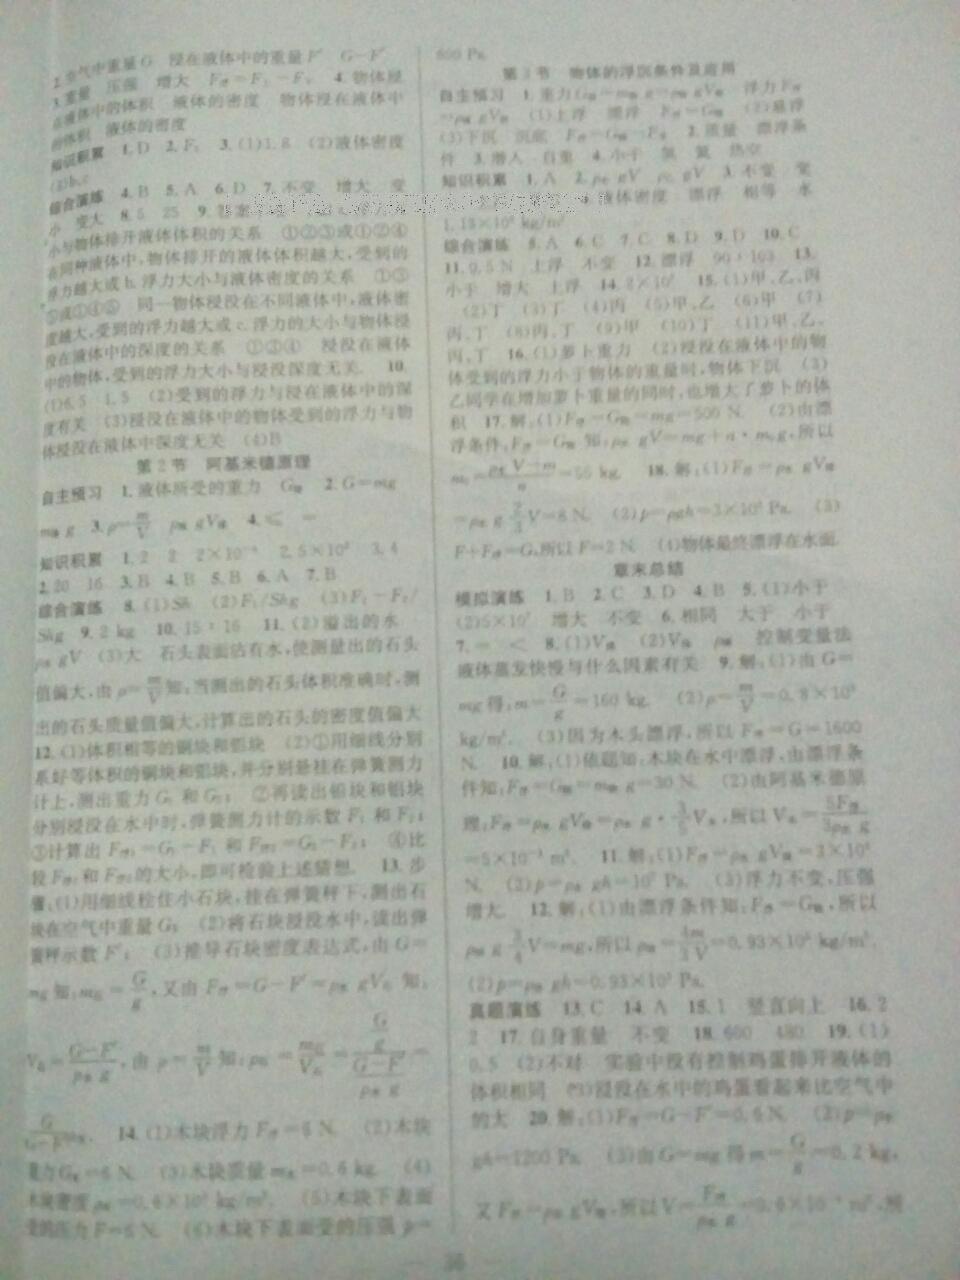 2.空气中重量G 浸在液体中的重量F′ G-F′
3.重量 压强 增大 F浮=F₁-F₂ 4.物体浸
在液体中的体积 液体的密度 物体浸在液体中
的体积 液体的密度
知识积累 1.D 2.F₂ 3.(1)1.8 (2)液体密度
(3)b,c
综合演练 4.B 5.A 6.D 7.不变 增大 变
小 变大 8.5 25 9.
小与物体排开液体体积的关系 ①②③或①②④
在同种液体中,物体排开的液体体积越大,受到的
浮力越大或b.浮力大小与液体密度的关系 ①③
⑤或①④⑤ 同一物体浸没在不同液体中,液体密
度越大,受到的浮力越大或c.浮力的大小与物体浸
没在液体中的深度的关系 ①③④ 浸没在液体
中的物体,受到的浮力大小与浸没深度无关. 10.
(1)6.5 1.5 (2)受到的浮力与浸在液体中的深
度有关 (3)浸没在液体中的物体受到的浮力与物
体浸没在液体中深度无关 (4)B
第2节 阿基米德原理
自主预习 1.液体所受的重力 G排 2.G=mg
m排g 3.ρ=m/V ρ液gV排 4.≤ =
知识积累 1.2 2 2×10⁻⁴ 2.5×10³ 3.4
2.20 16 3.B 4.B 5.B 6.A 7.B
综合演练 8.(1)Sh (2)F₁/Shg (3)F₁-F₂/
Shg 9.2 kg 10.15∶16 11.(2)溢出的水
ρ水gV (3)大 石头表面沾有水,使测量出的石头
值偏大,由ρ=m/V知:当测出的石头体积准确时,测
出的石头质量值偏大,计算出的石头的密度值偏大
12.(1)体积相等的铜块和铝块 (2)①用细线分别
系好等体积的铜块和铝块,并分别悬挂在弹簧测力
计上,测出重力G₁和G₂; ②再读出铝块和铝块
分别浸没在水中时,弹簧测力计的示数F₁和F₂;
③计算出F浮₁=G₁-F₁和F浮₂=G₂-F₂; ④比
较F浮₁和F浮₂的大小,即可检验上述猜想. 13.步
骤:(1)用细线栓住小石块,挂在弹簧秤下,测出石
块在空气中重量G; (2)将石块浸没水中,读出弹
簧秤示数F′; (3)推导石块密度表达式,由G=
mg知:m石=G/g,又由F浮=G-F′=ρ水gV石知:
V石=(G-F′)/(ρ水g),由ρ=m/V知:ρ石=m石/V石=(G/g)/((G-F′)/(ρ水g))=
G/(G-F′)ρ水. 14.(1)木块浮力F浮=6 N. (2)木块
重力G木=6 N. (3)木块质量m木=0.6 kg. (4)
木块密度ρ木=0.6×10³ kg/m³. (5)木块下表面
受的压力F=6 N. (6)木块下表面受的压强p=
600 Pa.
第3节 物体的浮沉条件及应用
自主预习 1.重力G物=m物g=ρ物gV物 浮力F浮
=ρ液gV排 (1)上浮 漂浮 F浮=G物 (2)悬浮
(3)下沉 沉底 F浮=G物-F支 2.质量 漂浮条
件 3.潜入 自重 4.小于 氢 氦 热空
知识积累 1.A 2.ρ液gV ρ物gV 3.不变 变
液体密度 漂浮 相等 水
1.15×10³ kg/m³
综合演练 5.A 6.C 7.C 8.D 9.D 10.C
11.0.5 N 上浮 不变 12.漂浮 90∶103 13.
小于 增大 上浮 14.2×10⁷ 15.(1)甲,乙,丙
(2)丁 (3)丁 (4)丙 (5)甲,乙 (6)甲 (7)
丙,丁 (8)丙,丁 (9)甲 (10)丁 (11)甲,乙,
丙,丁 16.(1)萝卜重力 (2)浸没在液体中的物
体受到的浮力小于物体的重量时,物体下沉 (3)
乙同学在增加萝卜重量的同时,也增大了萝卜的体
积 17.解:(1)F浮=G物=mg=500 N. (2)由漂
浮条件:F浮=G物知:ρ水gV=mg+n·m₀g,所以
m₀=(ρ水V-m)/n=55 kg. 18.解:(1)F浮=ρ水gV排
=ρ水g 2/3 V=8 N. (2)p=ρgh=3×10³ Pa. (3)
F+F浮=G,所以F=2 N. (4)物体最终漂浮在水面.
章末总结
模拟演练 1.B 2.C 3.D 4.B 5.(1)小于
(2)5×10⁷ 增大 不变 6.相同 大于 小于
7.= < 8.(1)V排 (2)V排 ρ液 控制变量法
液体蒸发快慢与什么因素有关 9.解:(1)由G=
mg得:m=G/g=160 kg. (2)ρ=m/V=0.8×10³
kg/m³. (3)因为木头漂浮,所以F浮=G=1600
N. 10.解:(1)依题知:木块在水中漂浮,由漂浮条
件知:F浮=G物=m物g=30 N. (2)由阿基米德原
理:F浮=ρ水gV排=ρ水g·3/5V木,所以V木=5F浮/3ρ水g
=5×10⁻³ m³. 11.解:(1)F浮=ρ水gV排=3×10⁴
N. (2)p=ρ水gh=10⁵ Pa. (3)浮力不变,压强
增大. 12.解:(1)由漂浮条件知:F浮=G物,所以
ρ水g 3/4V=mg,所以ρ液=4m/3V=0.93×10³ kg/m³.
(2)p=ρ液gh=0.93×10³ Pa.
真题演练 13.C 14.A 15.1 竖直向上 16.2
2 17.自身重量 不变 18.600 480 19.(1)
0.5 (2)不对 实验中没有控制鸡蛋排开液体的
体积相同 (3)浸没在水中的鸡蛋看起来比空气中
的大 20.解:(1)F浮=G-F′=0.6 N. (2)p=ρ水
gh=1200 Pa. (3)由G=mg得m=G/g=0.2 kg,
又F浮=ρ水gV排,所以V=F浮/ρ水g=0.6×10⁻⁴ m³,所
36